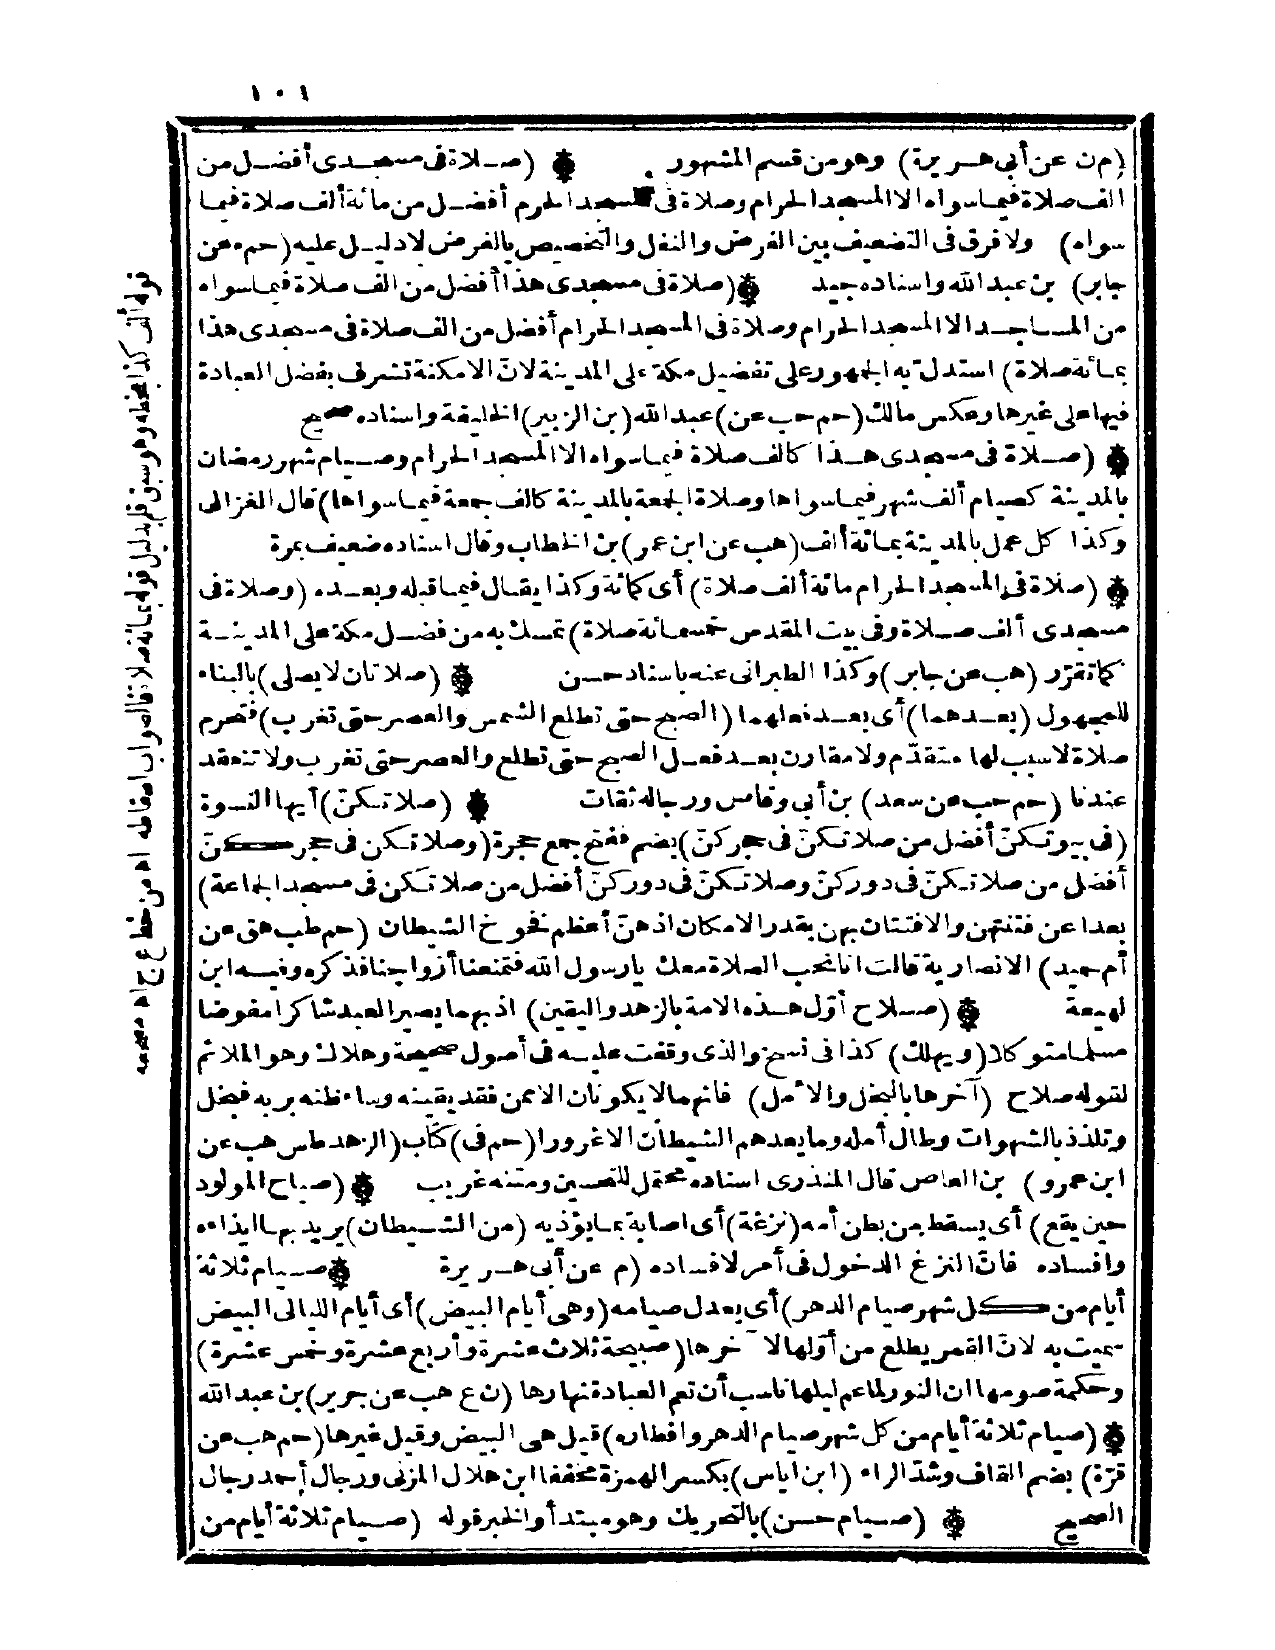 ١٠١
(م ن عن أبي هريرة) وهو من قسم المشهور . (صلاة فى مسجدى أفضل من
ألف صلاة فيما سواه الا المسجد الحرام وصلاة فى المسجد الحرم أفضل من مائة ألف صلاة فيما
سواه) ولا فرق فى التضعيف بين الفرض والنفل والتخصيص بالفرض لا دليل عليه (حم ه عن
جابر) بن عبد الله واسناده جيد (صلاة فى مسجدى هذا أفضل من الف صلاة فيما سواه
من المساجد الا المسجد الحرام وصلاة فى المسجد الحرام أفضل من الف صلاة فى مسجدى هذا
بمائة صلاة) استدل به الجمهور على تفضيل مكة على المدينة لانّ الامكنة تشرف بفضل العبادة
فيها على غيرها وعكس مالك (حم حب عن) عبد الله (بن الزبير) الخليفة واسناده صحيح
(صلاة فى مسجدى هذا كالف صلاة فيما سواه الا المسجد الحرام وصيام شهر رمضان
بالمدينة كصيام ألف شهر فيما سواها وصلاة الجمعة بالمدينة كالف جمعة فيما سواها) قال الغزالى
وكذا كل عمل بالمدينة بمائة ألف (هب عن ابن عمر) بن الخطاب وقال اسناده ضعيف بمرة
(صلاة فى المسجد الحرام مائة ألف صلاة) أى كمائة وكذا يقال فيما قبله وبعده (وصلاة فى
مسجدى ألف صلاة وفى بيت المقدس خمسمائة صلاة) تمسك به من فضل مكة على المدينة
كما تقرّر (هب عن جابر) وكذا الطبرانى عنه باسناد حسن (صلاتان لا يصلى) بالبناء
للمجهول (بعدهما) أى بعد فعلهما (الصبح حتى تطلع الشمس والعصر حتى تغرب) فتحرم
صلاة لا سبب لها متقدّم ولا مقارن بعد فعل الصبح حتى تطلع والعصر حتى تغرب ولا تنعقد
عندنا (حم حب عن سعد) بن أبى وقاص ورجاله ثقات (صلاتكنّ) أيها النسوة
(فى بيوتكنّ أفضل من صلاتكنّ فى حجركنّ) بضم ففتح جمع حجرة (وصلاتكن فى حجركنّ
أفضل من صلاتكنّ فى دوركنّ وصلاتكنّ فى دوركنّ أفضل من صلاتكن فى مسجد الجماعة)
بعدا عن فتنتهن والافتتان بهن بقدر الامكان اذ هنّ أعظم نخوخ الشيطان (حم طب هق عن
أم حميد) الانصارية قالت انا نحب الصلاة معك يارسول الله فتمنعنا أزواجنا فذكره وفيه ابن
لهيعة (صلاح أوّل هذه الامة بالزهد واليقين) اذ بهما يصير العبد شاكرا مفوضا
مسلما متوكلا (ويهلك) كذا فى نسخ والذى وقفت عليه فى أصول صحيحة وهلاك وهو الملائم
لقوله صلاح (آخرها بالبخل والامل) فانهما لا يكونان الا ممن فقد يقينه وساء ظنه بربه فبخل
وتلذذ بالشهوات وطال أمله وما يعدهم الشيطان الا غرورا (حم فى) كتاب (الزهد طس هب عن
ابن عمرو) بن العاص قال المنذرى اسناده محتمل للتحسين ومتنه غريب (صياح المولود
حين يقع) أى يسقط من بطن أمه (نزغة) أى اصابة بما يؤذيه (من الشيطان) يريد بها ايذاءه
وافساده فانّ النزغ الدخول فى أمر لافساده (م عن أبى هريرة (صيام ثلاثة
أيام من كل شهر صيام الدهر) أى يعدل صيامه (وهى أيام البيض) أى أيام الليالى البيض
سميت به لانّ القمر يطلع من أوّلها لآخرها (صبيحة ثلاث عشرة وأربع عشرة وخمس عشرة)
وحكمة صومها ان النور لما عم ليلها ناسب أن تعم العبادة نهارها (ن ع هب عن جرير) بن عبد الله
(صيام ثلاثة أيام من كل شهر صيام الدهر وافطاره) قيل هى البيض وقيل غيرها (حم هب عن
قرّة) بضم القاف وشدّ الراء (ابن اياس) بكسر الهمزة مخففا ابن هلال المزنى ورجال أحمد رجال
الصحيح (صيام حسن) بالتحريك وهو مبتدأ والخبر قوله (صيام ثلاثة أيام من
قوله ألف كذا بخطه وهو سبق قلم بدليل قوله بمائة صلاة فالصواب اسقاطه اه من خط ع ج اه مصححه